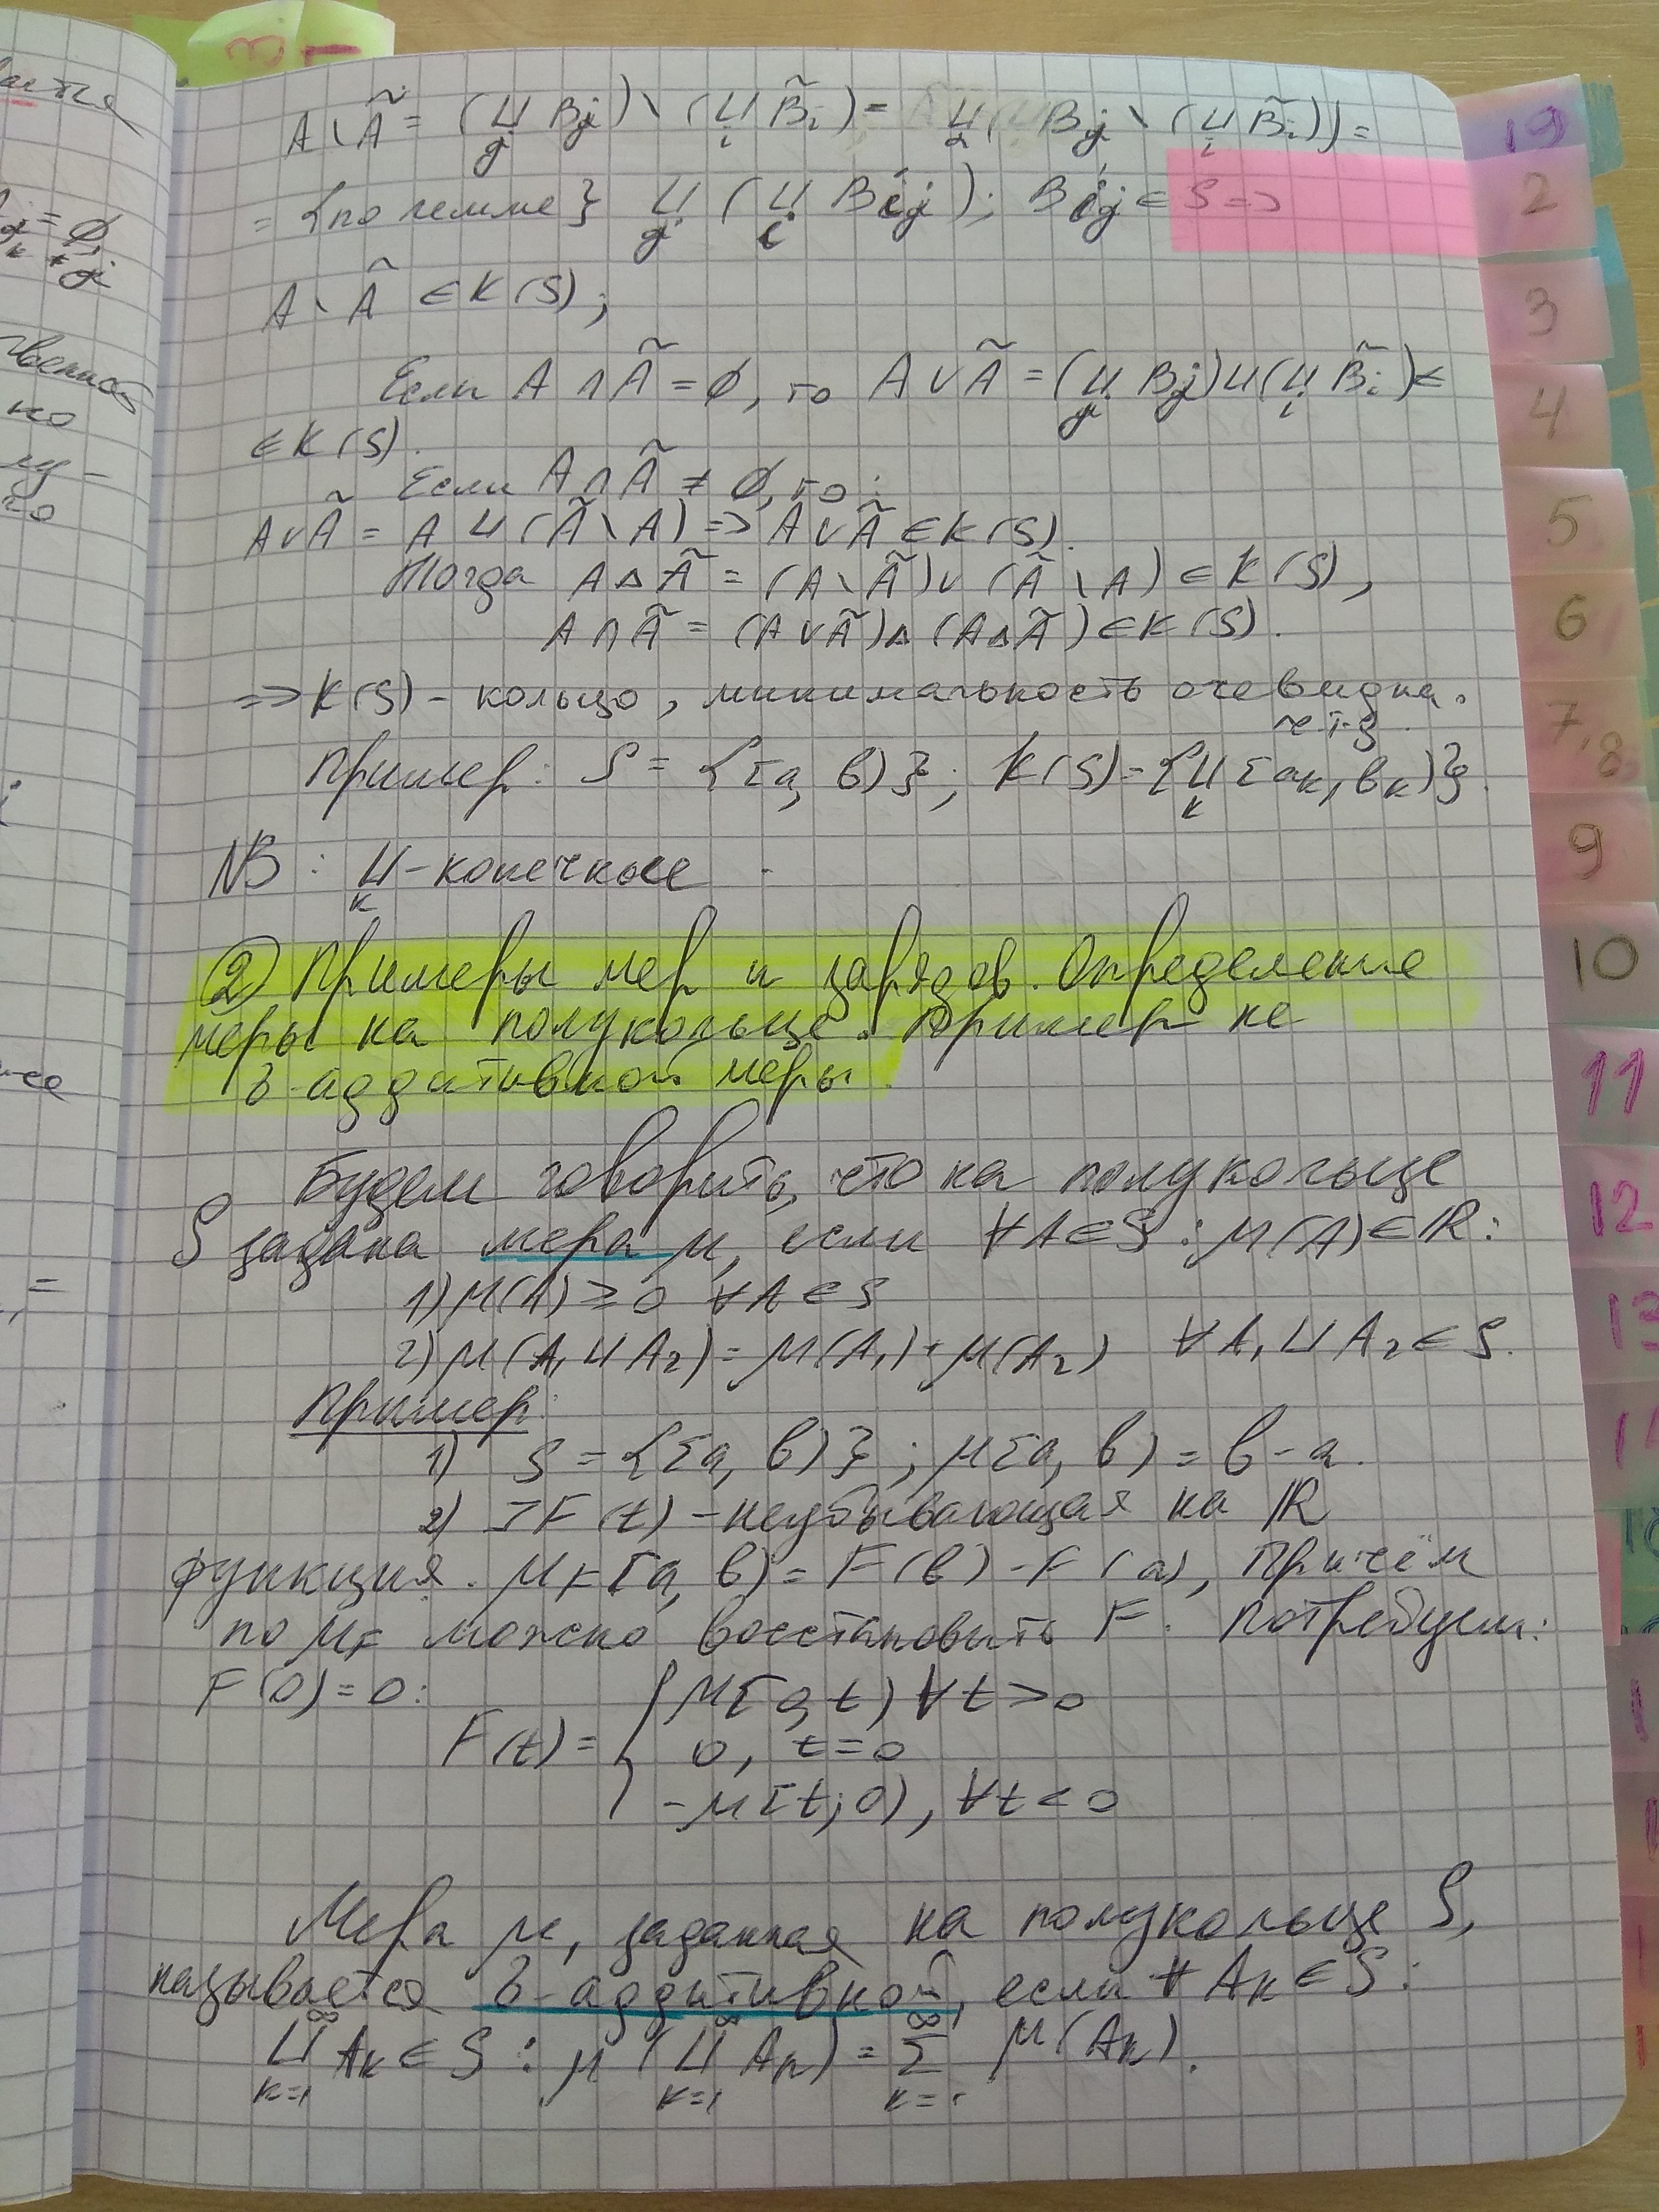 31
A \ Ã = (⊔_j B_j) \ (⊔_i B̃_i) = ⊔_j (B_j \ (⊔_i B̃_i)) =
= {по лемме} ⊔_j (⊔_i B_ij); B_ij ∈ S =>
A \ Ã ∈ K(S);
Если A ∩ Ã = ∅, то A ∪ Ã = (⊔_j B_j) ⊔ (⊔_i B̃_i) ∈
∈ K(S).
Если A ∩ Ã ≠ ∅, то:
A ∪ Ã = A ⊔ (Ã \ A) => A ∪ Ã ∈ K(S).
Тогда A Δ Ã = (A \ Ã) ∪ (Ã \ A) ∈ K(S),
A ∩ Ã = (A ∪ Ã) Δ (A Δ Ã) ∈ K(S).
=> K(S) - кольцо, минимальность очевидна.
ч.т.д.
Пример: S = {[a, b)}; K(S) = {⊔_k [a_k, b_k)}.
NB: ⊔_k - конечные
② Примеры мер и зарядов. Определение
меры на полукольце. Пример не
σ-аддитивной меры.
Будем говорить, что на полукольце
S задана мера μ, если ∀A∈S : μ(A)∈ℝ:
1) μ(A) ≥ 0 ∀A∈S
2) μ(A₁ ⊔ A₂) = μ(A₁) + μ(A₂) ∀A₁ ⊔ A₂ ∈ S.
Пример:
1) S = {[a, b)}; μ[a, b) = b - a.
2) ∃F(t) - неубывающая на ℝ
функция. μ_F[a, b) = F(b) - F(a), Причём
по μ_F можно восстановить F. Потребуем:
F(0) = 0:
μ[0, t) ∀t > 0
F(t) = { 0, t = 0
-μ[t; 0), ∀t < 0
Мера μ, заданная на полукольце S,
называется σ-аддитивной, если ∀ A_k ∈ S:
⊔_{k=1}^∞ A_k ∈ S : μ(⊔_{k=1}^∞ A_k) = Σ_{k=1}^∞ μ(A_k).
19
2
3
4
5
6
7,8
9
10
11
12
13